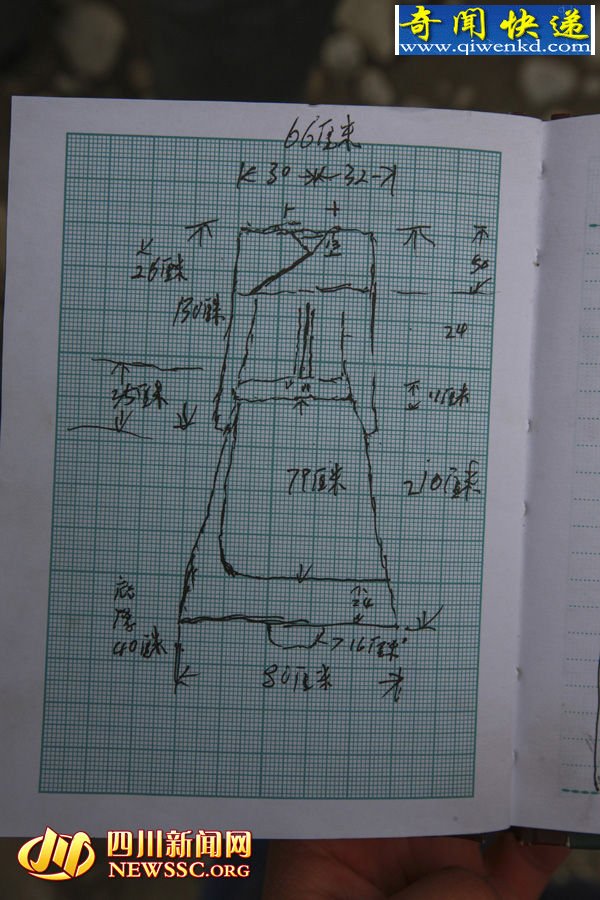 奇闻快递
www.qiwenkd.com
66厘米
30 32
26厘米
50
130厘米
24
25厘米
11厘米
79厘米
210厘米
24
底厚
40厘米
16厘米
80厘米
四川新闻网
NEWSSC.ORG